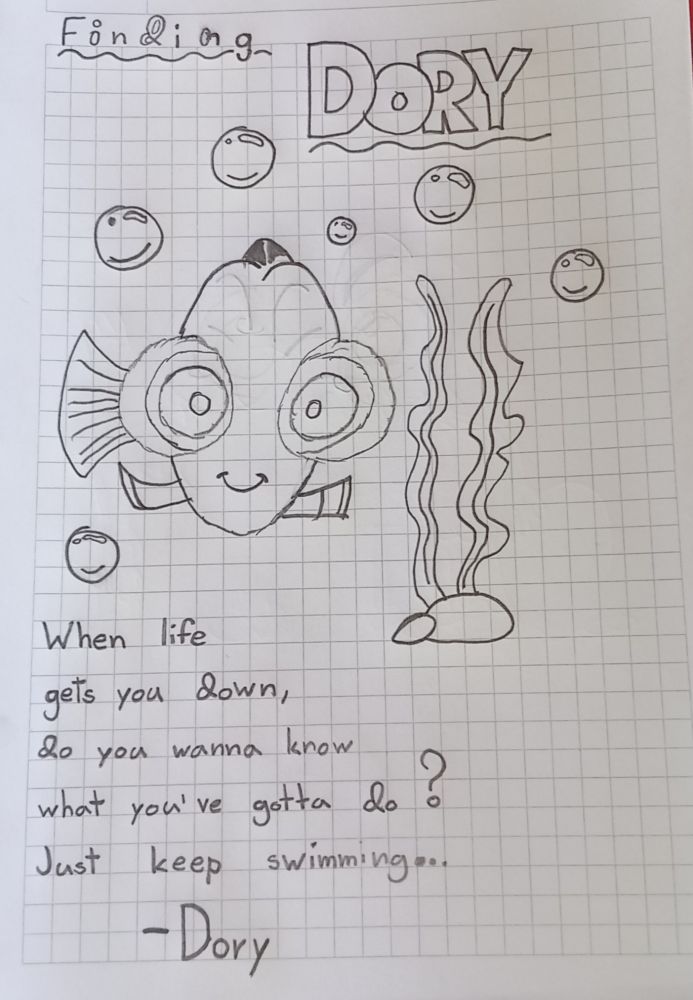 Finding
DORY
When life
gets you down,
do you wanna know
what you've gotta do?
Just keep swimming...
-Dory